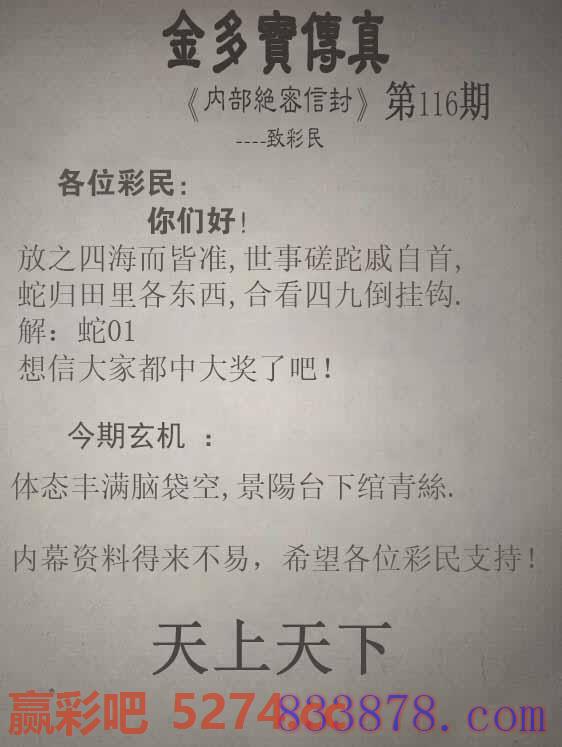 金多寳傳真
《内部絕密信封》第116期
----致彩民
各位彩民:
你们好!
放之四海而皆准,世事磋跎戚自首,
蛇归田里各东西,合看四九倒挂钩.
解：蛇01
想信大家都中大奖了吧!
今期玄机 :
体态丰满脑袋空,景陽台下绾青絲.
内幕资料得来不易，希望各位彩民支持!
天上天下
赢彩吧 5274.cc
833878.com